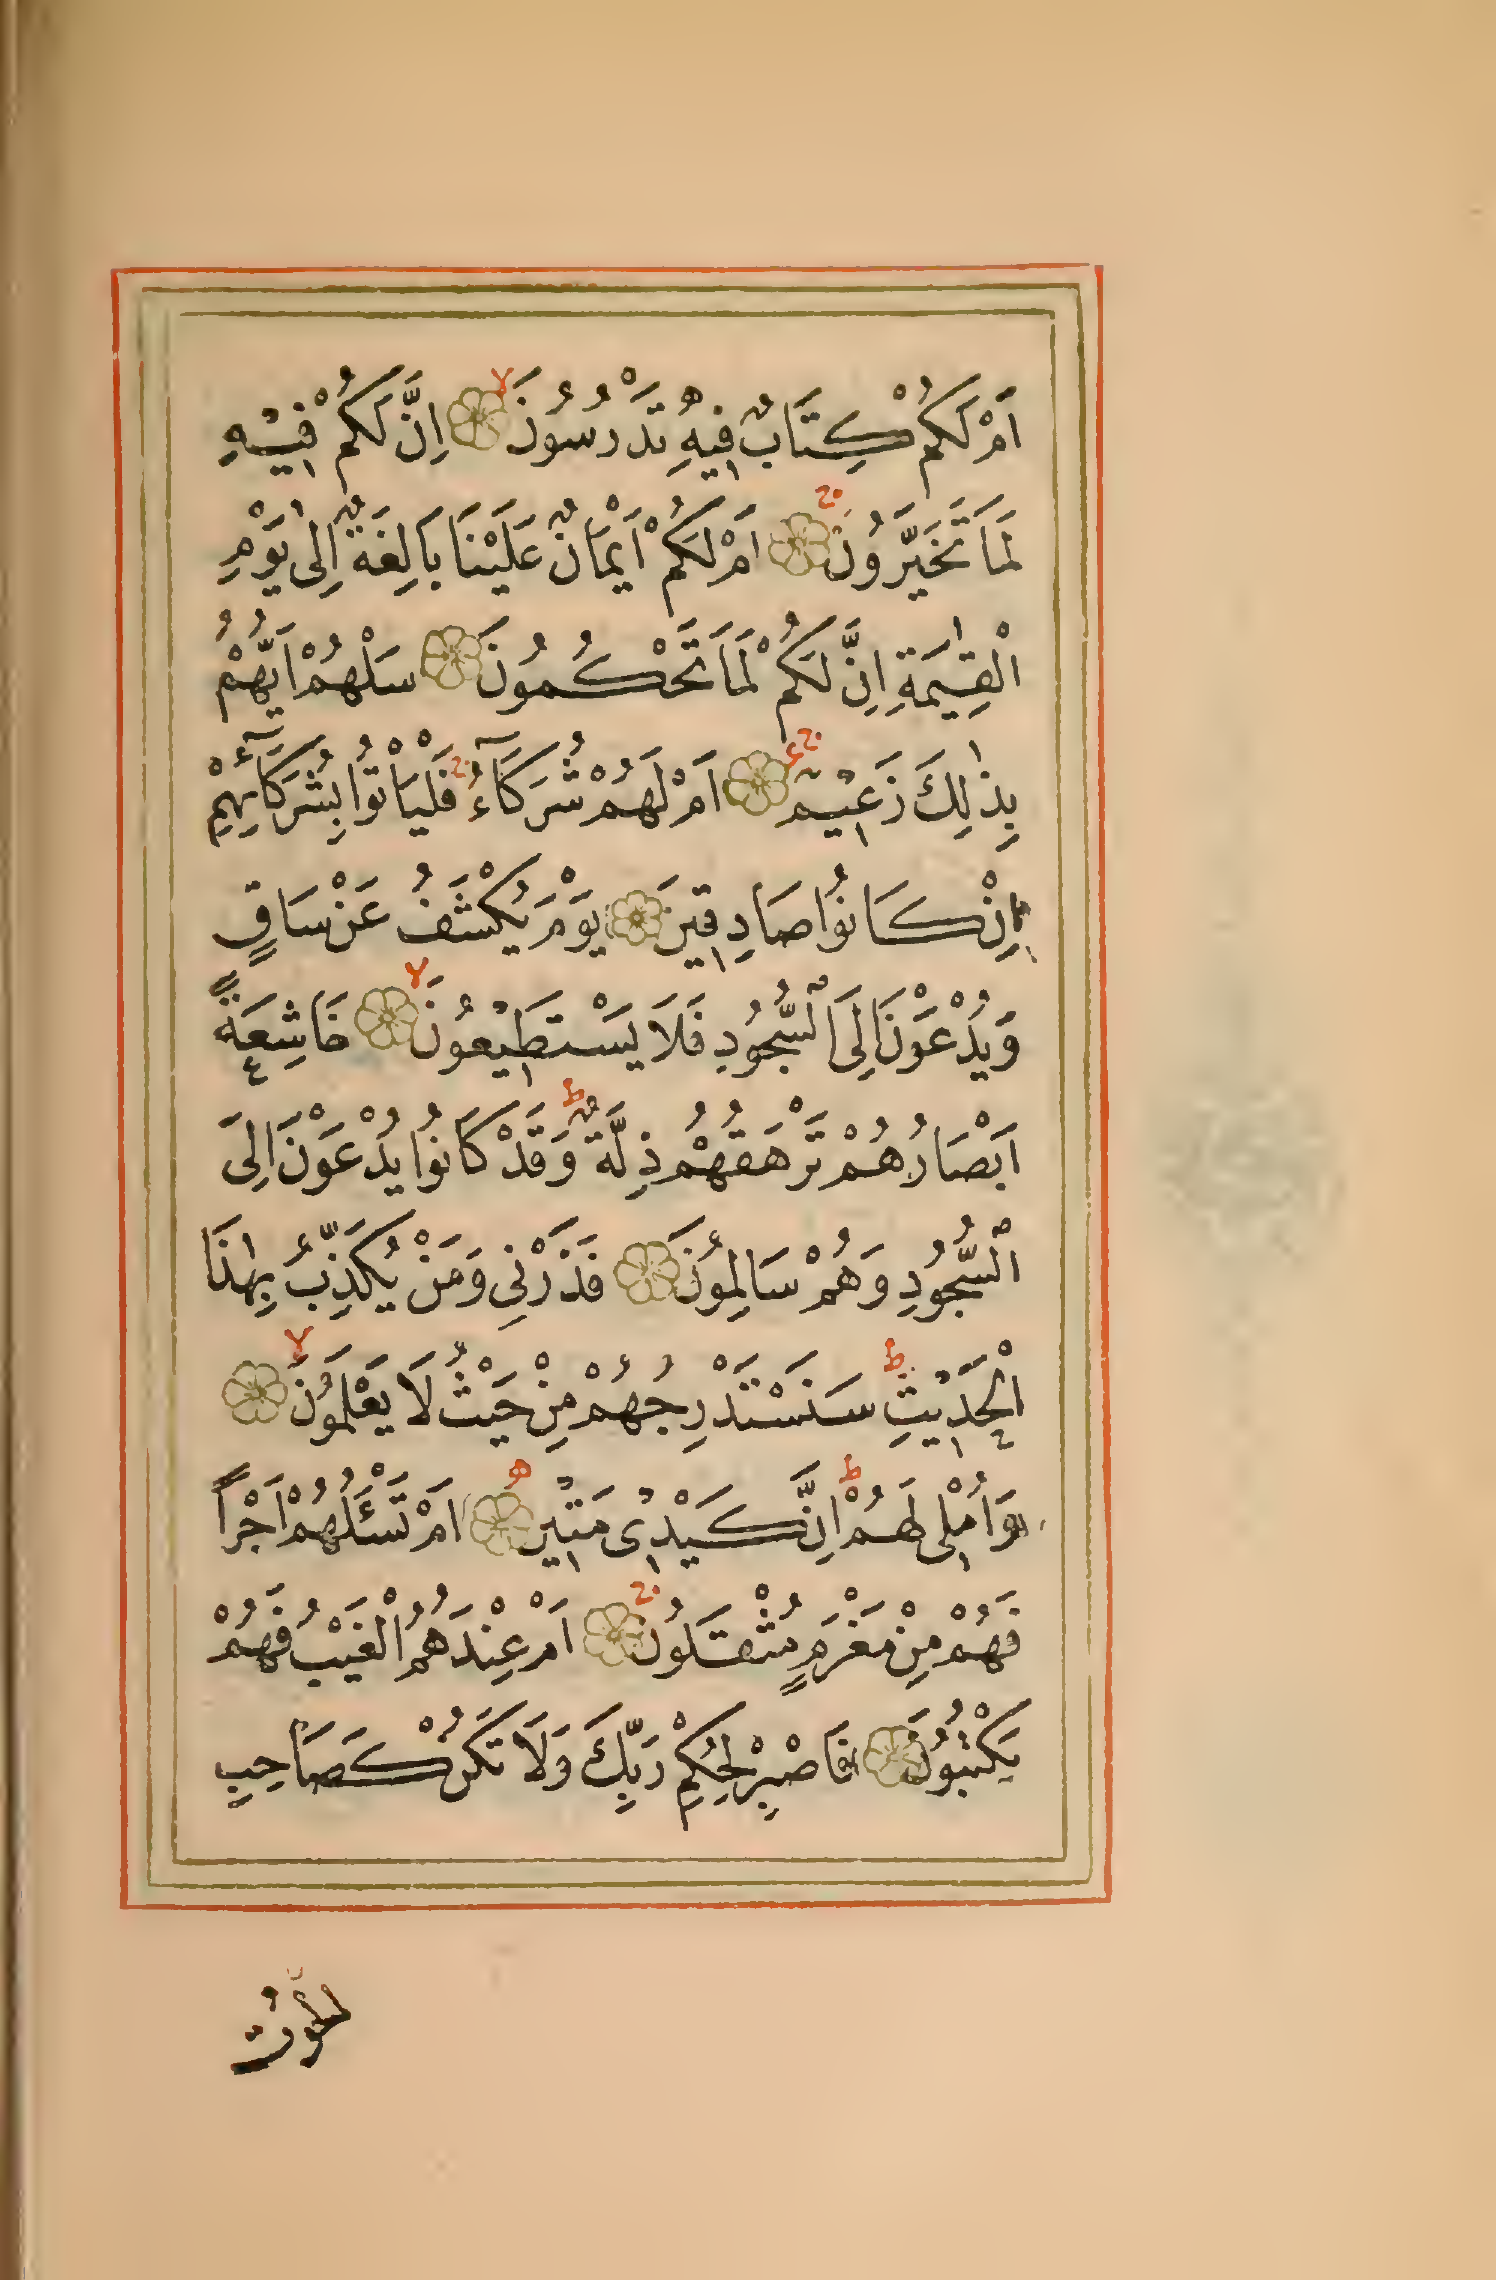 اَمْ لَكُمْ كِتَابٌ فِيهِ تَدْرُسُونَ ۝ اِنَّ لَكُمْ فِيْهِ
لَمَا تَخَيَّرُونَ ۝ اَمْ لَكُمْ اَيْمَانٌ عَلَيْنَا بَالِغَةٌ اِلٰى يَوْمِ
الْقِيٰمَةِ اِنَّ لَكُمْ لَمَا تَحْكُمُونَ ۝ سَلْهُمْ اَيُّهُمْ
بِذٰلِكَ زَعِيْمٌ ۝ اَمْ لَهُمْ شُرَكَآءُ فَلْيَاْتُوْا بِشُرَكَآئِهِمْ
اِنْ كَانُوا صَادِقِينَ ۝ يَوْمَ يُكْشَفُ عَنْ سَاقٍ
وَيُدْعَوْنَ اِلَى السُّجُودِ فَلَا يَسْتَطِيْعُونَ ۝ خَاشِعَةً
اَبْصَارُهُمْ تَرْهَقُهُمْ ذِلَّةٌ وَقَدْ كَانُوا يُدْعَوْنَ اِلَى
السُّجُودِ وَهُمْ سَالِمُونَ ۝ فَذَرْنِى وَمَنْ يُكَذِّبُ بِهٰذَا
الْحَدِيْثِ سَنَسْتَدْرِجُهُمْ مِنْ حَيْثُ لَا يَعْلَمُونَ ۝
وَاُمْلِى لَهُمْ اِنَّ كَيْدِى مَتِيْنٌ ۝ اَمْ تَسْئَلُهُمْ اَجْرًا
فَهُمْ مِنْ مَغْرَمٍ مُثْقَلُونَ ۝ اَمْ عِنْدَهُمُ الْغَيْبُ فَهُمْ
يَكْتُبُونَ ۝ فَاصْبِرْ لِحُكْمِ رَبِّكَ وَلَا تَكُنْ كَصَاحِبِ
الْحُوْتِ